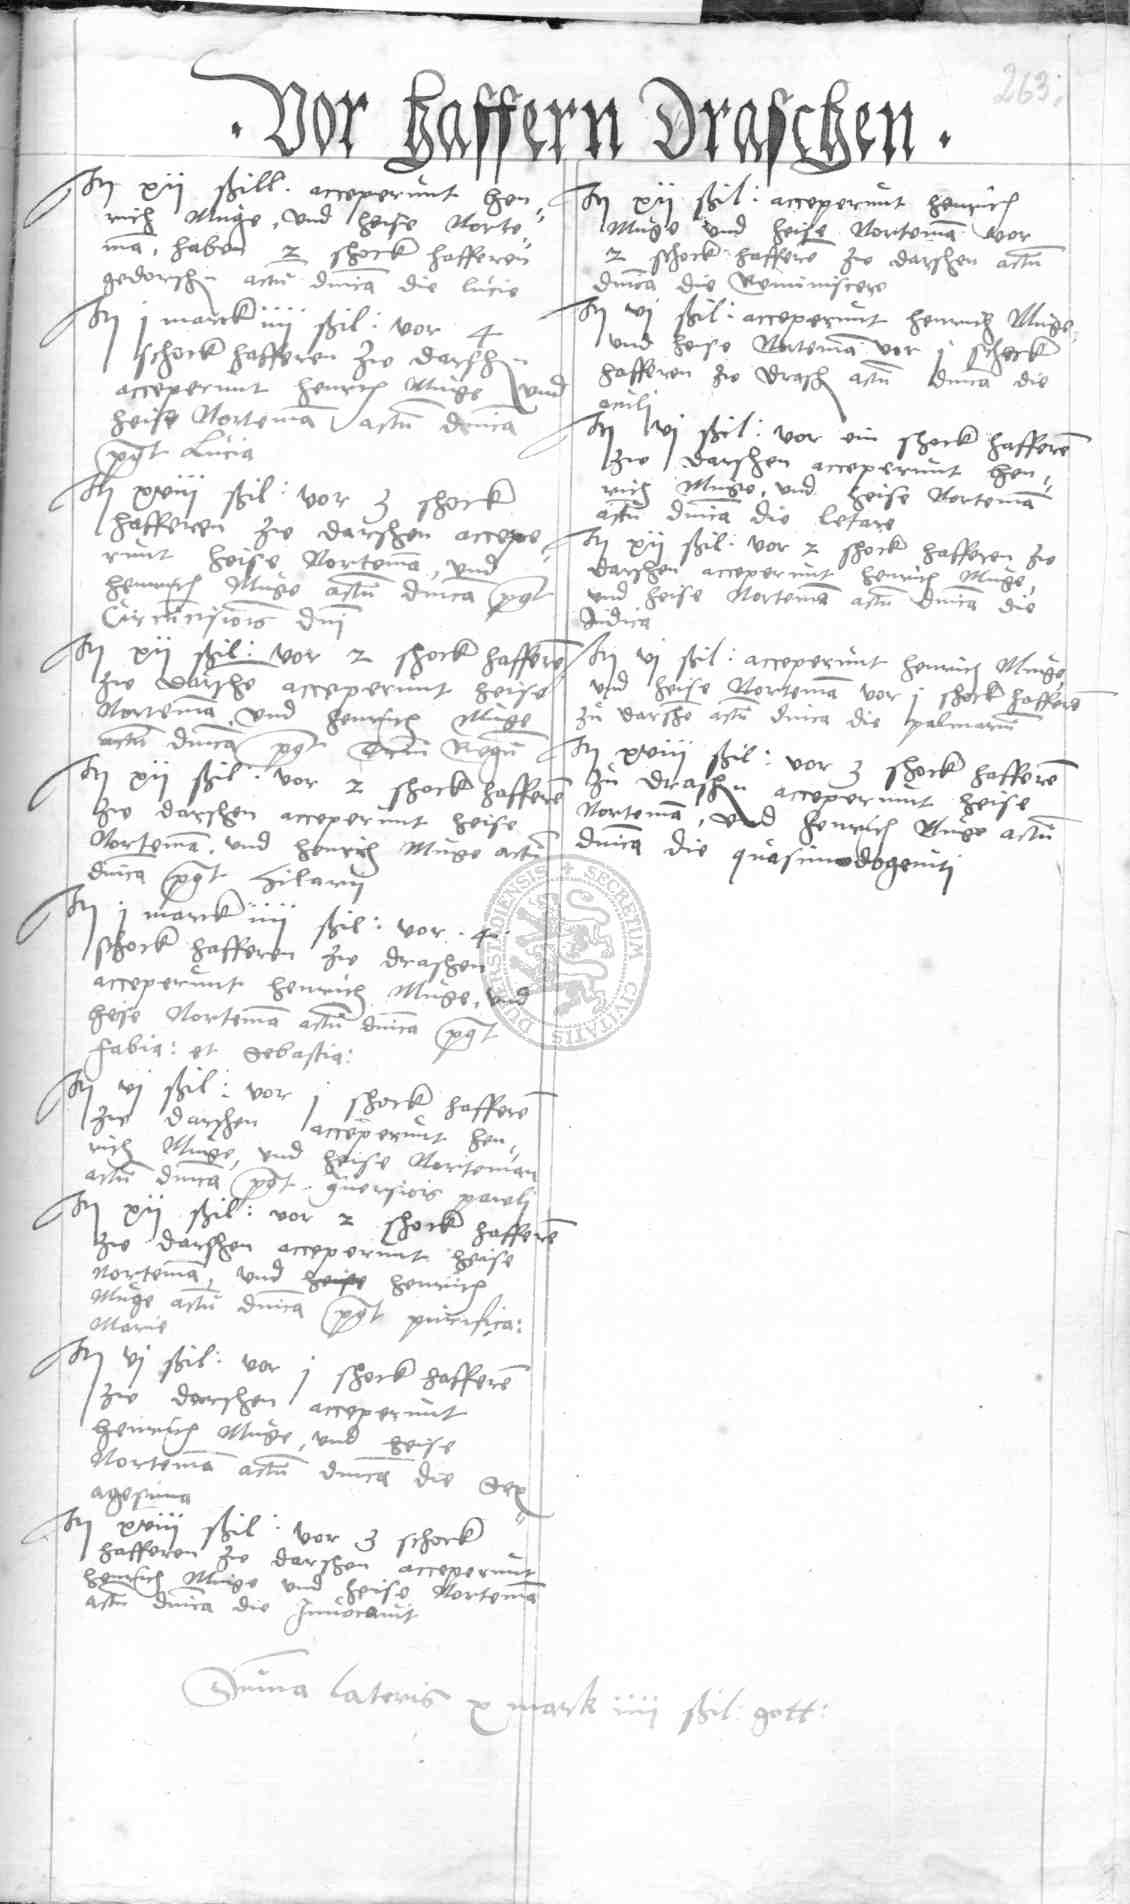 263
. Vor haffern Draschen .
It xii ßill. acceperunt hen„
rich Muge, und heise Norte„
mā, haben 2 shock hafferen
gedorshn actū dnīca die lucie
It j marck iiii ßil: vor 4
schock hafferen zue darshn
acceperunt henrich Muge und
heise Nortemā actū dnīca
pꝰt Lucia
It xviii ßil: vor 3 shock
hafferen zue darshen accepe„
runt heise Nortemā, und
henrich Muge actū dnīca pꝰt
Circūcisiōis dnī
It xii ßil: vor 2 shock hafferē
zue darshe acceperunt heise
Nortemā, und henrich Muge
actū dnīca pꝰt Triū Regū
It xii ßil: vor 2 shock hafferē
zue darshen acceperunt heise
Nortemā, und henrich Muge actū
dnīca pꝰt hilarii
It j marck iiii ßil: vor . 4 .
schock hafferen zue drashen
acceperunt henrich Muge, und
heise Nortemā actū dnīca pꝰt
fabia: et Sebastia:
It vi ßil: vor j shock hafferē
zue darshen acceperunt hen„
rich Muge, und heise Norteman
actū dnīca pꝰt 9uersiōis pauli
It xii ßil: vor 2 shock hafferē
zue darshen acceperunt heise
Nortemā, und heise henrich
Muge actū dnīca pꝰt purifica:
Marie
It vi ßil: vor j shock hafferē
zue darshen acceperunt
henrich Muge, und heise
Nortemā actū dnīca die Sex„
agesima
It xviii ßil: vor 3 schock
hafferen zue darshen acceperunt
henrich Muge und heise Nortemā
actū dnīca die Inuocauit
It xii ßil: acceperunt henrich
Muge und heise Nortemā vor
2 schock haffere zue darshen actū
dnīca die Reminiscere
It vi ßil: acceperunt henrich Muge,
und heise Nortemā vor j schock
hafferen zue drash actū dnīca die
oculi
It vi ßil: vor ein shock hafferē
zue darshen acceperunt hen„
rich Muge, und heise Nortemā
actū dnīca die letare
It xii ßil: vor 2 shock hafferen zue
darshen acceperunt henrich Muge,
und heise Nortemā actū dnīca die
Iudica
It vi ßil: acceperunt henrich Muge,
und heise Nortemā vor j shock hafferē
zu darshe actū dnīca die palmarū
It xviii ßil: vor 3 shock hafferē
zu drashn acceperunt heise
Nortemā, und henrich Muge actū
dnīca die quasimodogeniti
Sūma lateris x mark iiii ßil: gott:
SECRETUM CIVITATIS DUDERSTADIENSIS